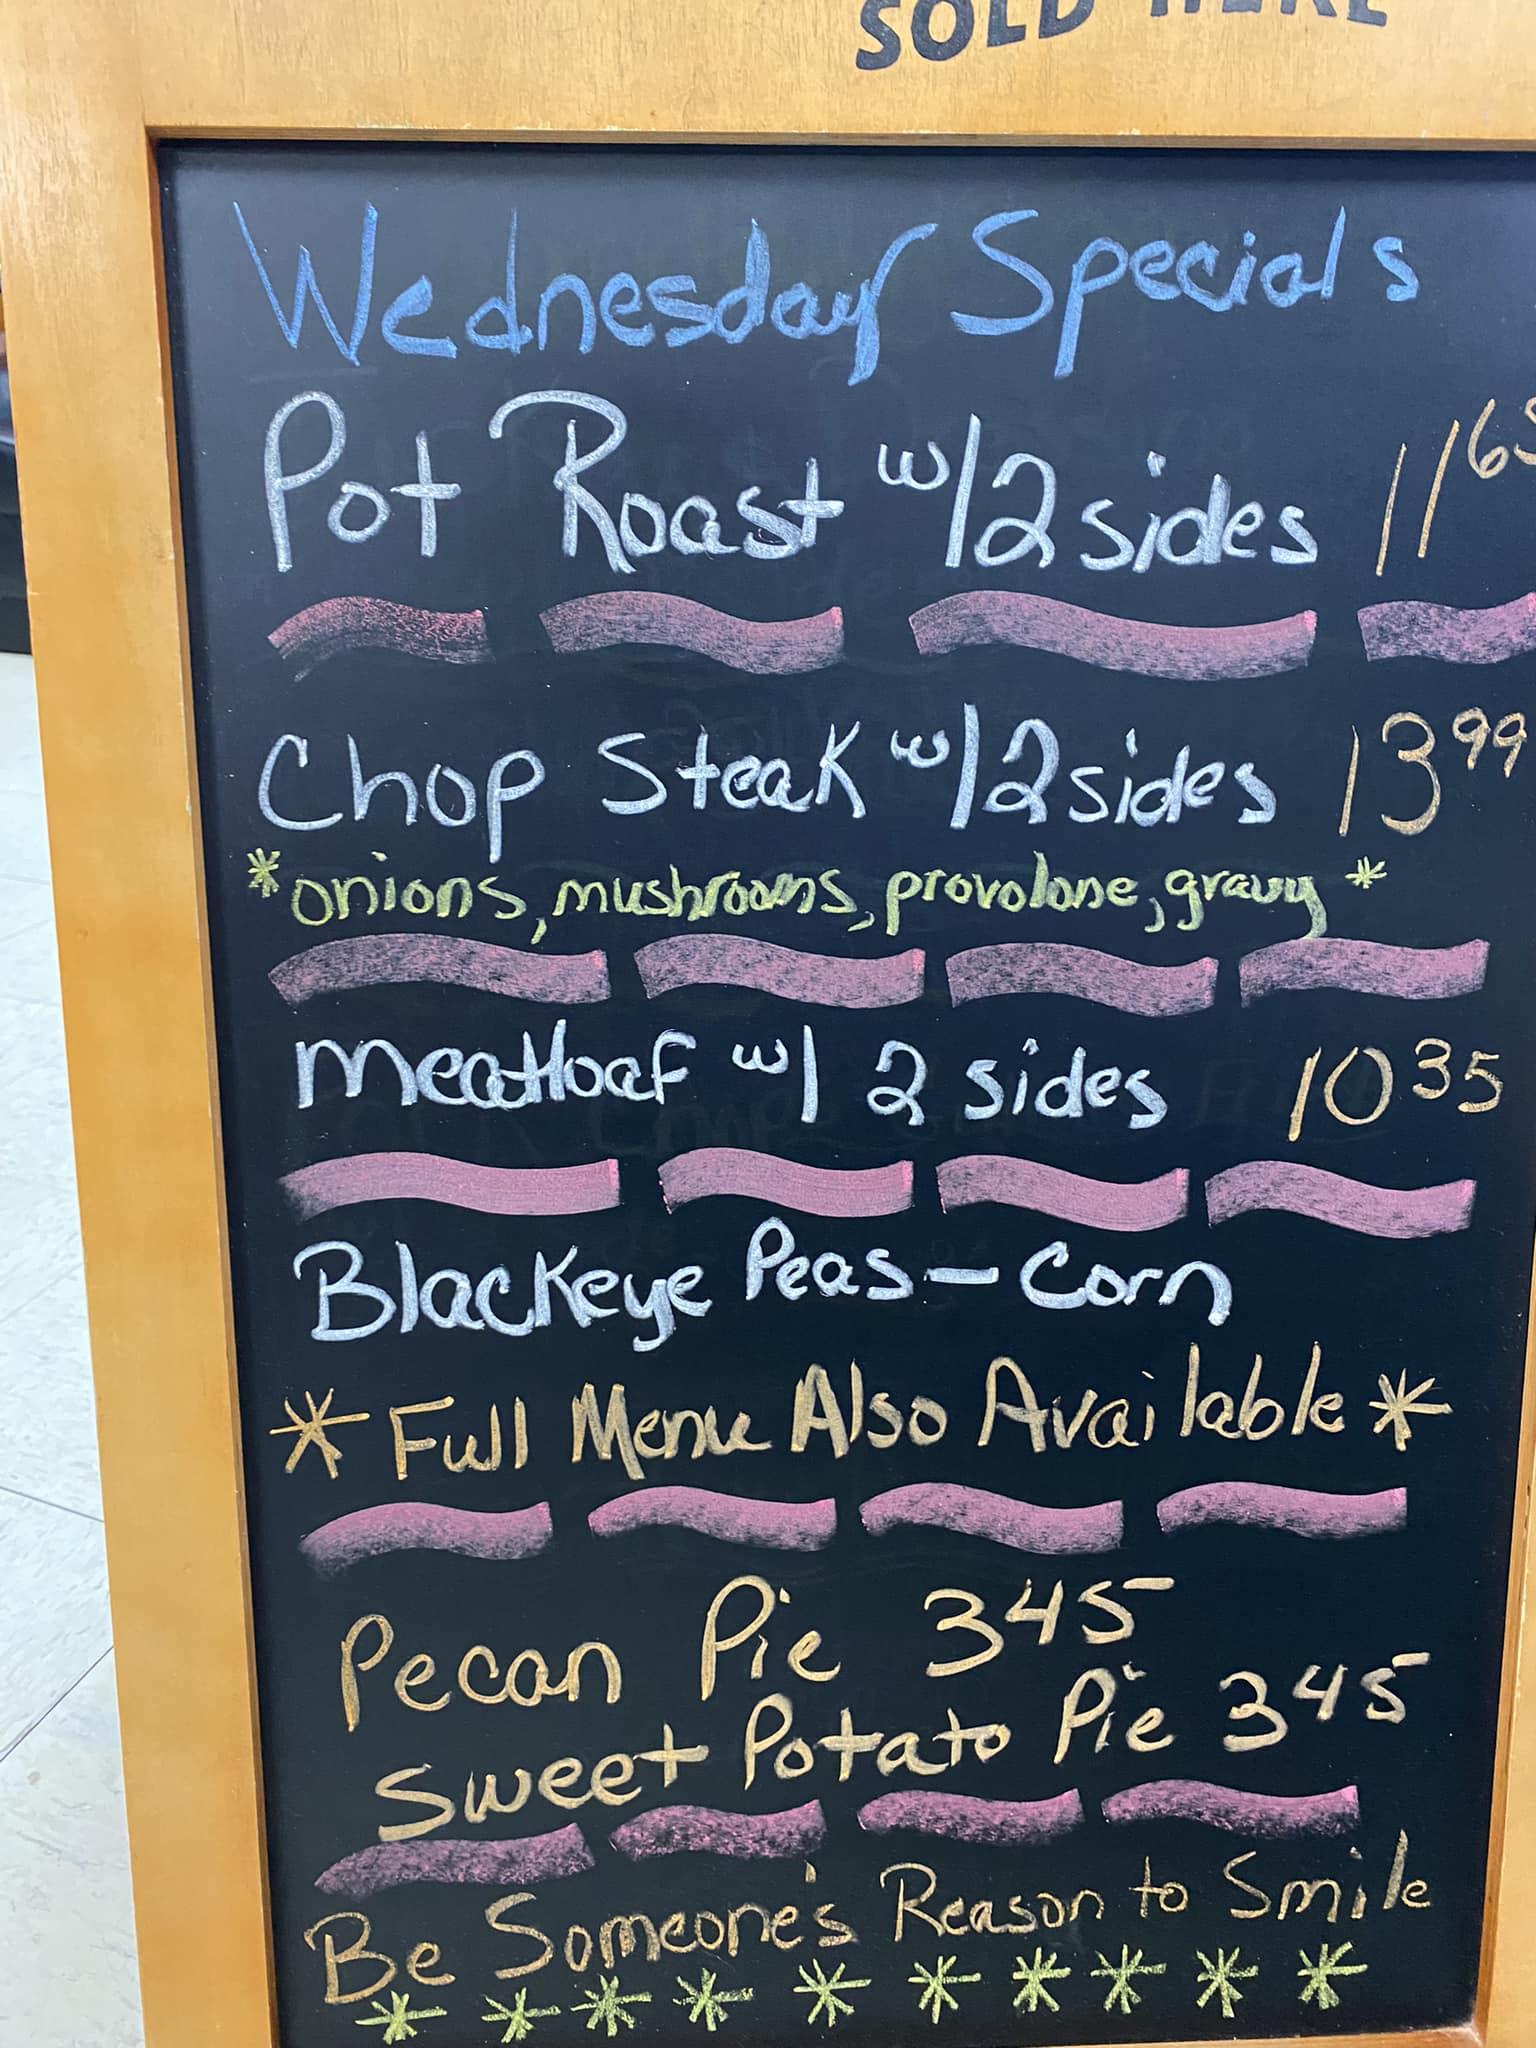 SOLD HERE
Wednesday Specials
Pot Roast w/2 sides 11 65
Chop Steak w/2 sides 13 99
*onions, mushrooms, provolone, gravy*
Meatloaf w/ 2 sides 10 35
Blackeye Peas - Corn
* Full Menu Also Available *
Pecan Pie 3 45
Sweet Potato Pie 3 45
Be Someone's Reason to Smile
* * * * * * * * *